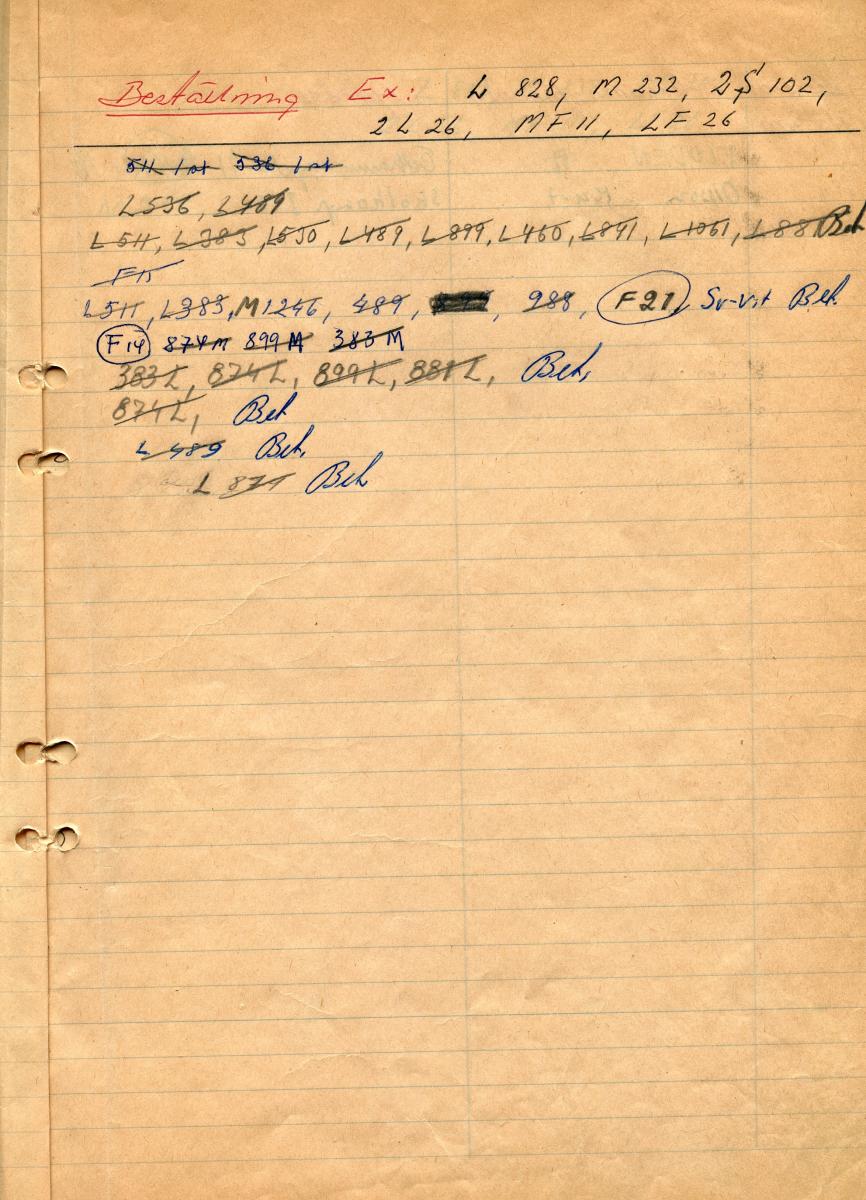 Beställning Ex: L 828, M 232, 2S 102,
2 L 26, MF 11, LF 26
511 1 st 536 1 st
L 536, L 489
L 511, L 383, L 550, L 489, L 899, L 460, L 841, L 1061, L 881 Beh
F 15
L 511, L 383, M 1246, 489, 988, F 21, Sv-vit Beh.
F 14 874 M 899 M 383 M
383 L, 874 L, 899 L, 881 L, Beh,
874 L, Beh
L 489 Beh,
L 871 Beh